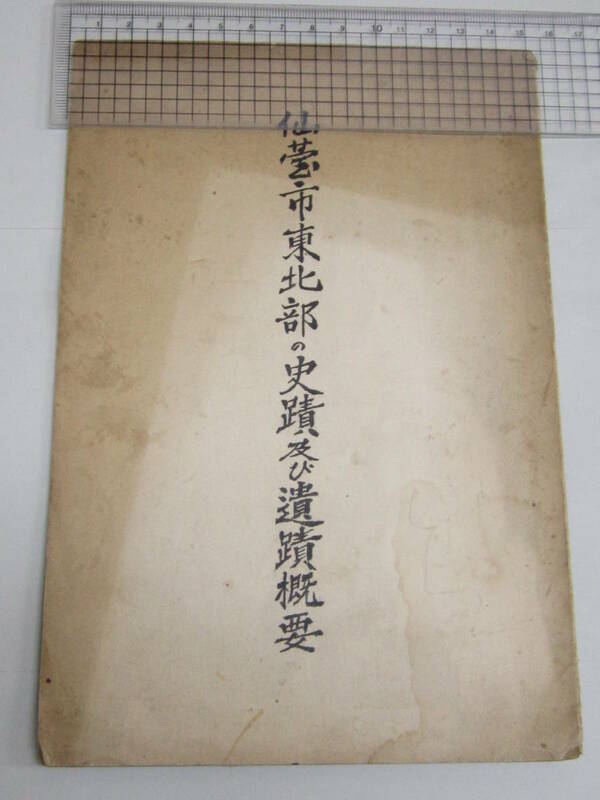 1 2 3 4 5 6 7 8 9 10 11 12 13 14 15 16 17
仙臺市東北部の史蹟及び遺蹟概要